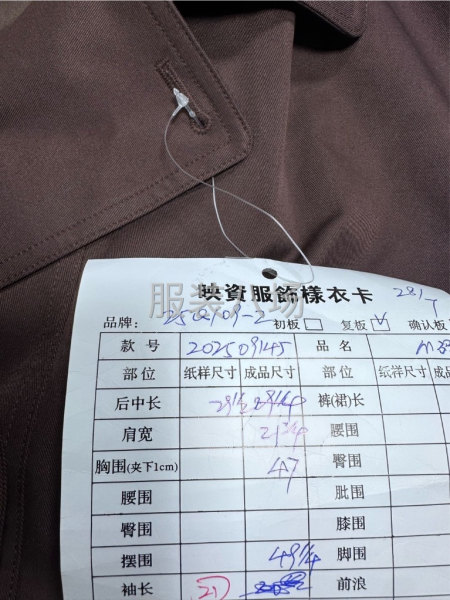 映資服飾樣衣卡
281/T
品牌: 250909-2 初板 复板 ✓ 确认板
款号 202509145 品名
部位 纸样尺寸 成品尺寸 部位 纸样尺寸 成品
后中长 裤(裙)长
肩宽 21 3/4 腰围
胸围(夹下1cm) 47 臀围
腰围 肶围
臀围 膝围
摆围 49 1/4 脚围
袖长 21 前浪
服装小场